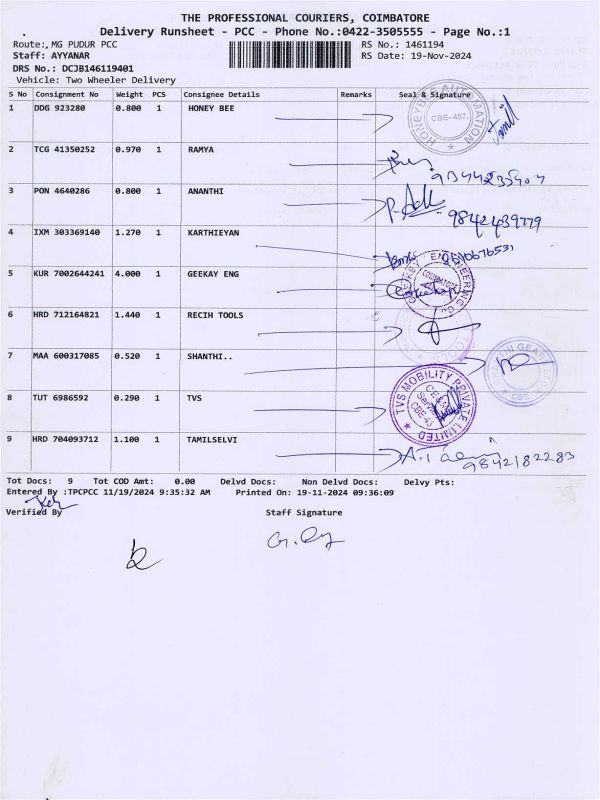 THE PROFESSIONAL COURIERS, COIMBATORE
Delivery Runsheet - PCC - Phone No.:0422-3505555 - Page No.:1
Route:, MG PUDUR PCC RS No.: 1461194
Staff: AYYANAR RS Date: 19-Nov-2024
DRS No.: DCJB146119401
Vehicle: Two Wheeler Delivery
S No Consignment No Weight PCS Consignee Details Remarks Seal & Signature
1 DDG 923280 0.800 1 HONEY BEE
HONEYBEE AUTOMATION CBE-407.
2 TCG 41350252 0.970 1 RAMYA
3 PON 4640286 0.800 1 ANANTHI
9842439779
4 IXM 303369140 1.270 1 KARTHIEYAN
5 KUR 7002644241 4.000 1 GEEKAY ENG
6 HRD 712164821 1.440 1 RECIH TOOLS
7 MAA 600317085 0.520 1 SHANTHI..
SHANTHI GEARS LTD CBE
8 TUT 6986592 0.290 1 TVS
TVS MOBILITY PRIVATE LIMITED
9 HRD 704093712 1.100 1 TAMILSELVI
9842182283
Tot Docs: 9 Tot COD Amt: 0.00 Delvd Docs: Non Delvd Docs: Delvy Pts:
Entered By :TPCPCC 11/19/2024 9:35:32 AM Printed On: 19-11-2024 09:36:09
Verified By Staff Signature